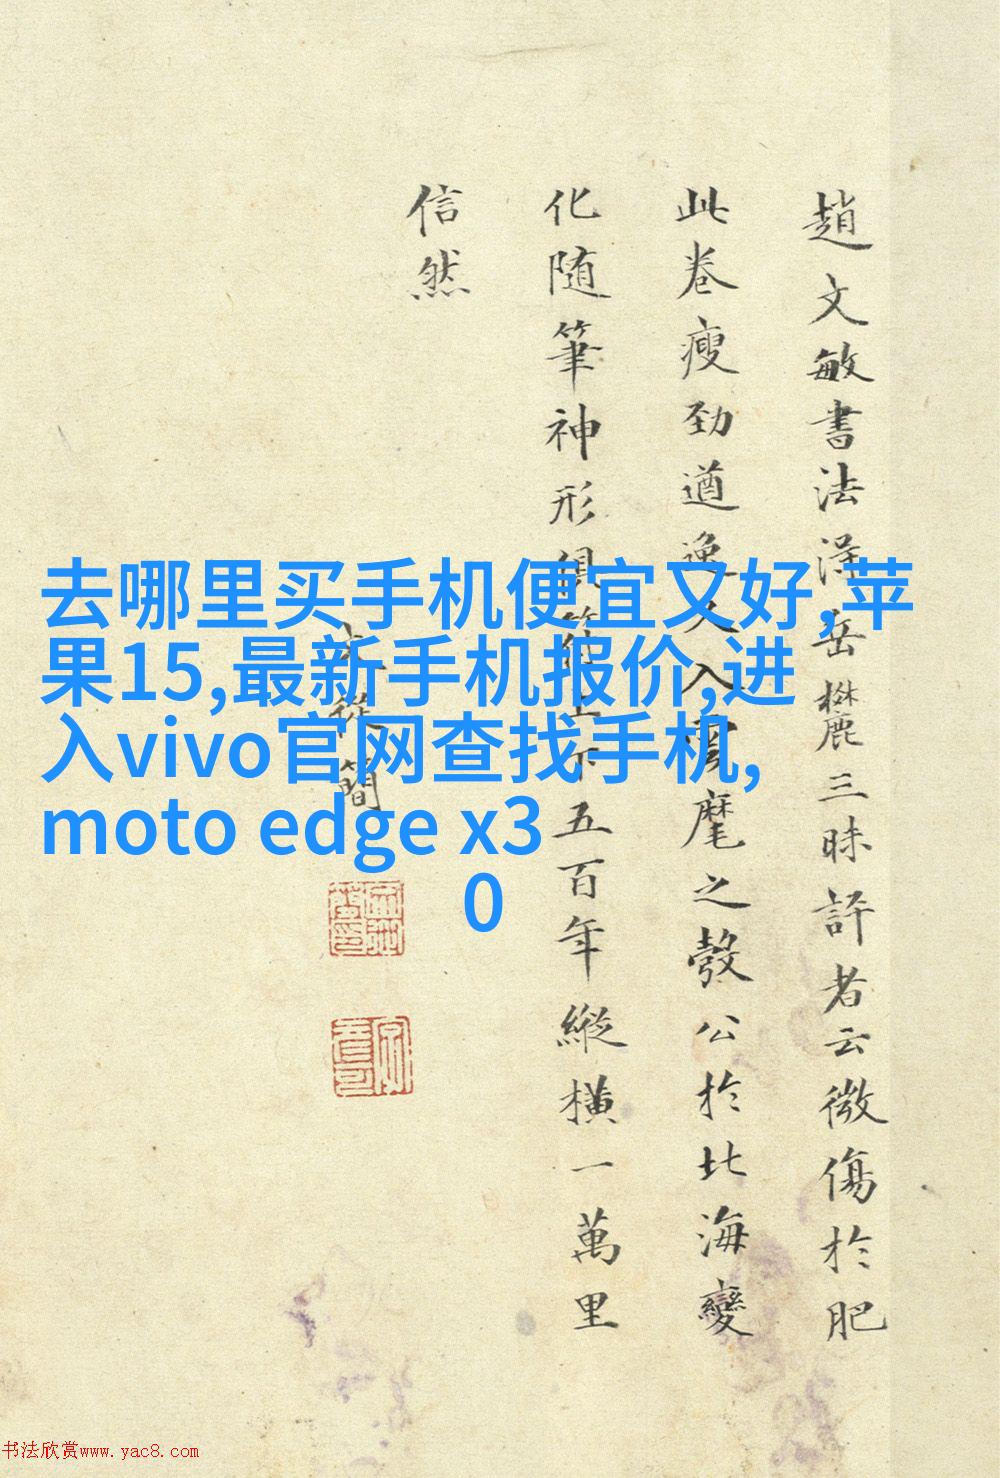 趙文敏書法得岳麓三昧評者云微傷於肥
此卷瘦勁遒逸久入雲麾之彀公於北海變
化随筆神形俱符上下五百年縱橫一萬里
信然
從簡
去哪里买手机便宜又好,苹
果15,最新手机报价,进
入vivo官网查找手机,
moto edge x3
0
书法欣赏www.yac8.com